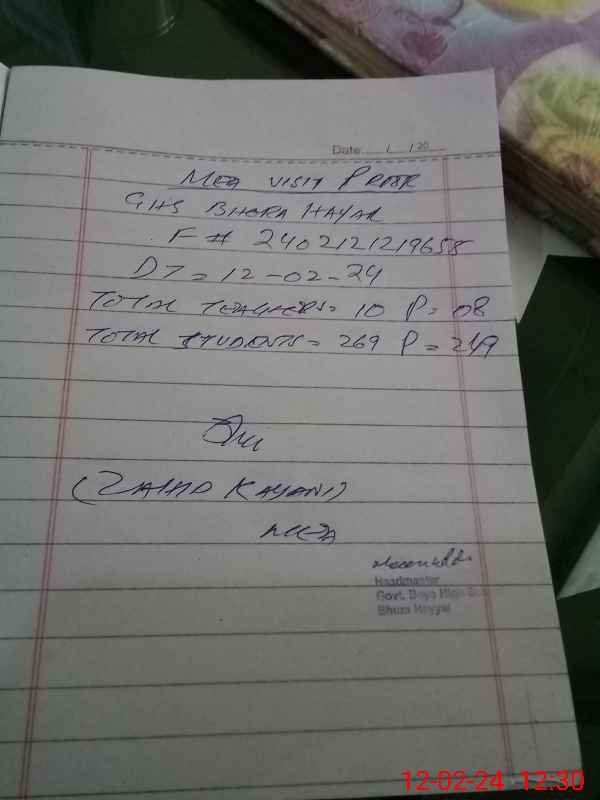 Date: / / 20
MEA VISIT PROOF
GHS BHORA HAYAL
F# 2402121219658
DT = 12-02-24
TOTAL TEACHERS = 10 P = 08
TOTAL STUDENTS = 269 P = 249
(ZAHID KAYANI)
MEA
Headmaster
Govt. Boys High
Bhura Hayyal
12-02-24 12:30